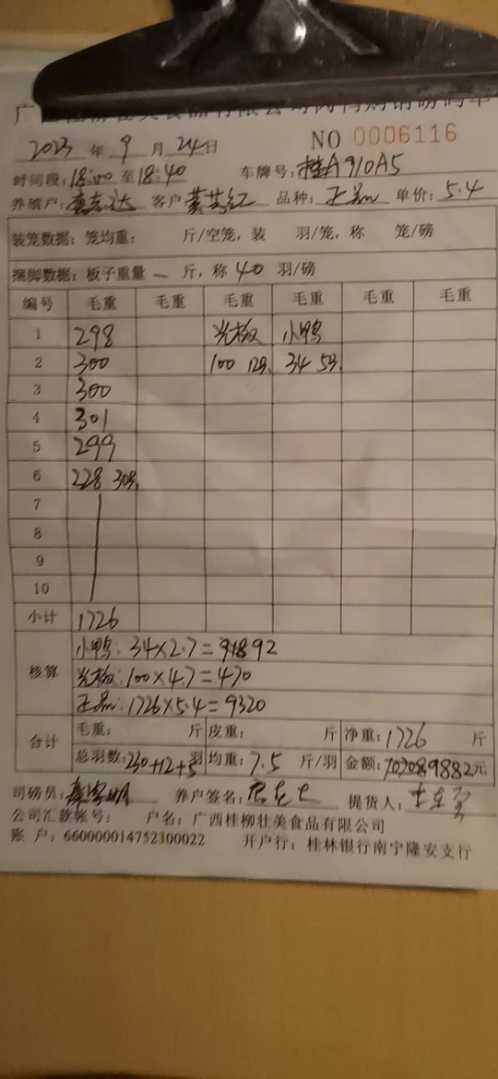 2023 年 9 月 24 日 NO 0006116
时间段: 18:00 至 18:40 车牌号: 桂A910A5
养殖户: 客户 品种: 正品 单价: 5.4
装笼数据: 笼均重: 斤/空笼, 装 羽/笼, 称 笼/磅
捆脚数据: 板子重量 — 斤, 称 40 羽/磅
编号 毛重 毛重 毛重 毛重 毛重 毛重
1 298 光板 小鸭
2 300 100 12只 34 5只
3 300
4 301
5 299
6 228 30只
7
8
9
10
小计 1726
核算 小鸭: 34×2.7=91.892
光板: 100×4.7=470
正品: 1726×5.4=9320
合计 毛重: 斤 皮重: 斤 净重: 1726 斤
总羽数: 230+12+5 羽 均重: 7.5 斤/羽 金额: 9882元
司磅员: 养户签名: 提货人:
公司汇款帐号: 户名: 广西桂柳壮美食品有限公司
账 户: 660000014752300022 开户行: 桂林银行南宁隆安支行